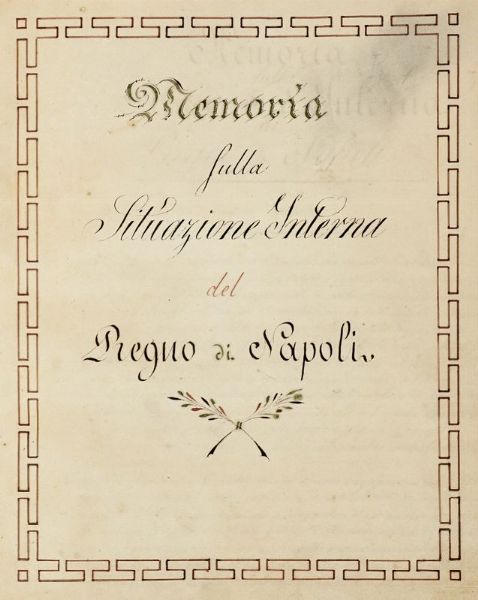 Memoria
sulla
Situazione Interna
del
Regno di Napoli.